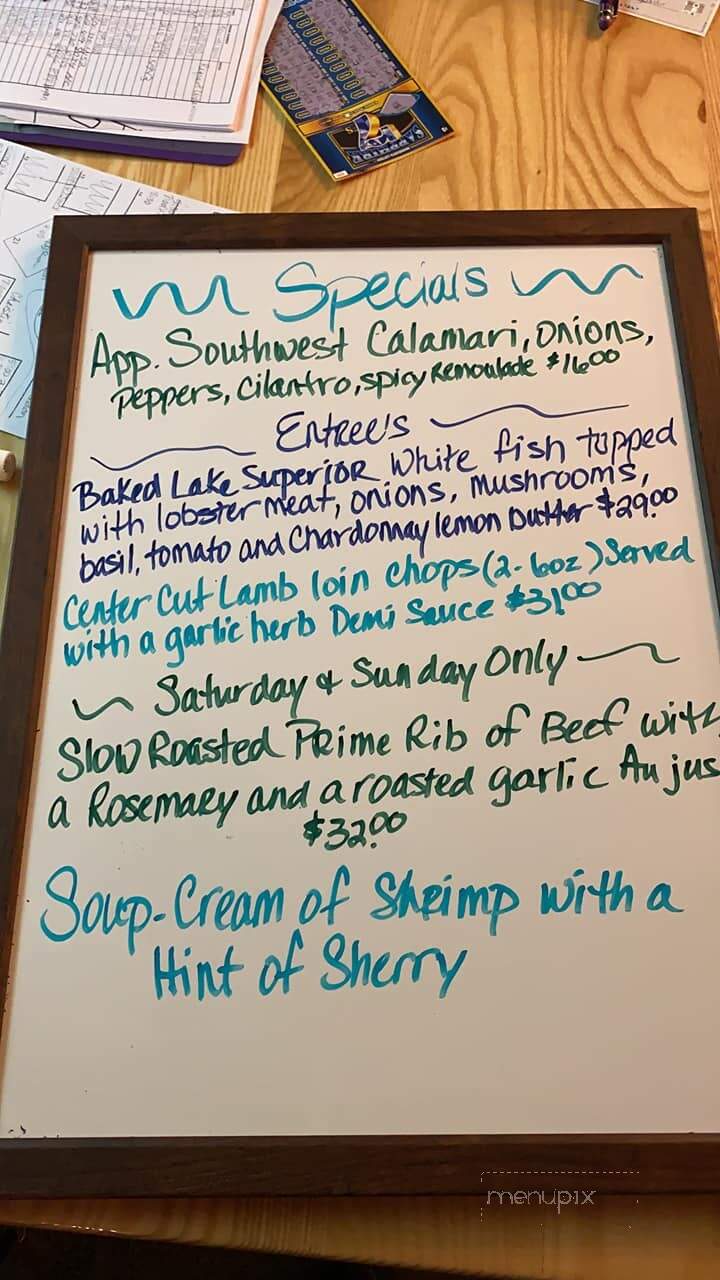 Specials
App. Southwest Calamari, Onions,
Peppers, Cilantro, spicy Remoulade $16.00
Entree's
Baked Lake Superior White fish topped
with lobster meat, onions, mushrooms,
basil, tomato and Chardonnay lemon butter $29.00
Center Cut Lamb loin chops (2-6oz) Served
with a garlic herb Demi Sauce $31.00
Saturday & Sunday Only
Slow Roasted Prime Rib of Beef with
a Rosemary and a roasted garlic Au jus
$32.00
Soup-Cream of Shrimp with a
Hint of Sherry
menupix